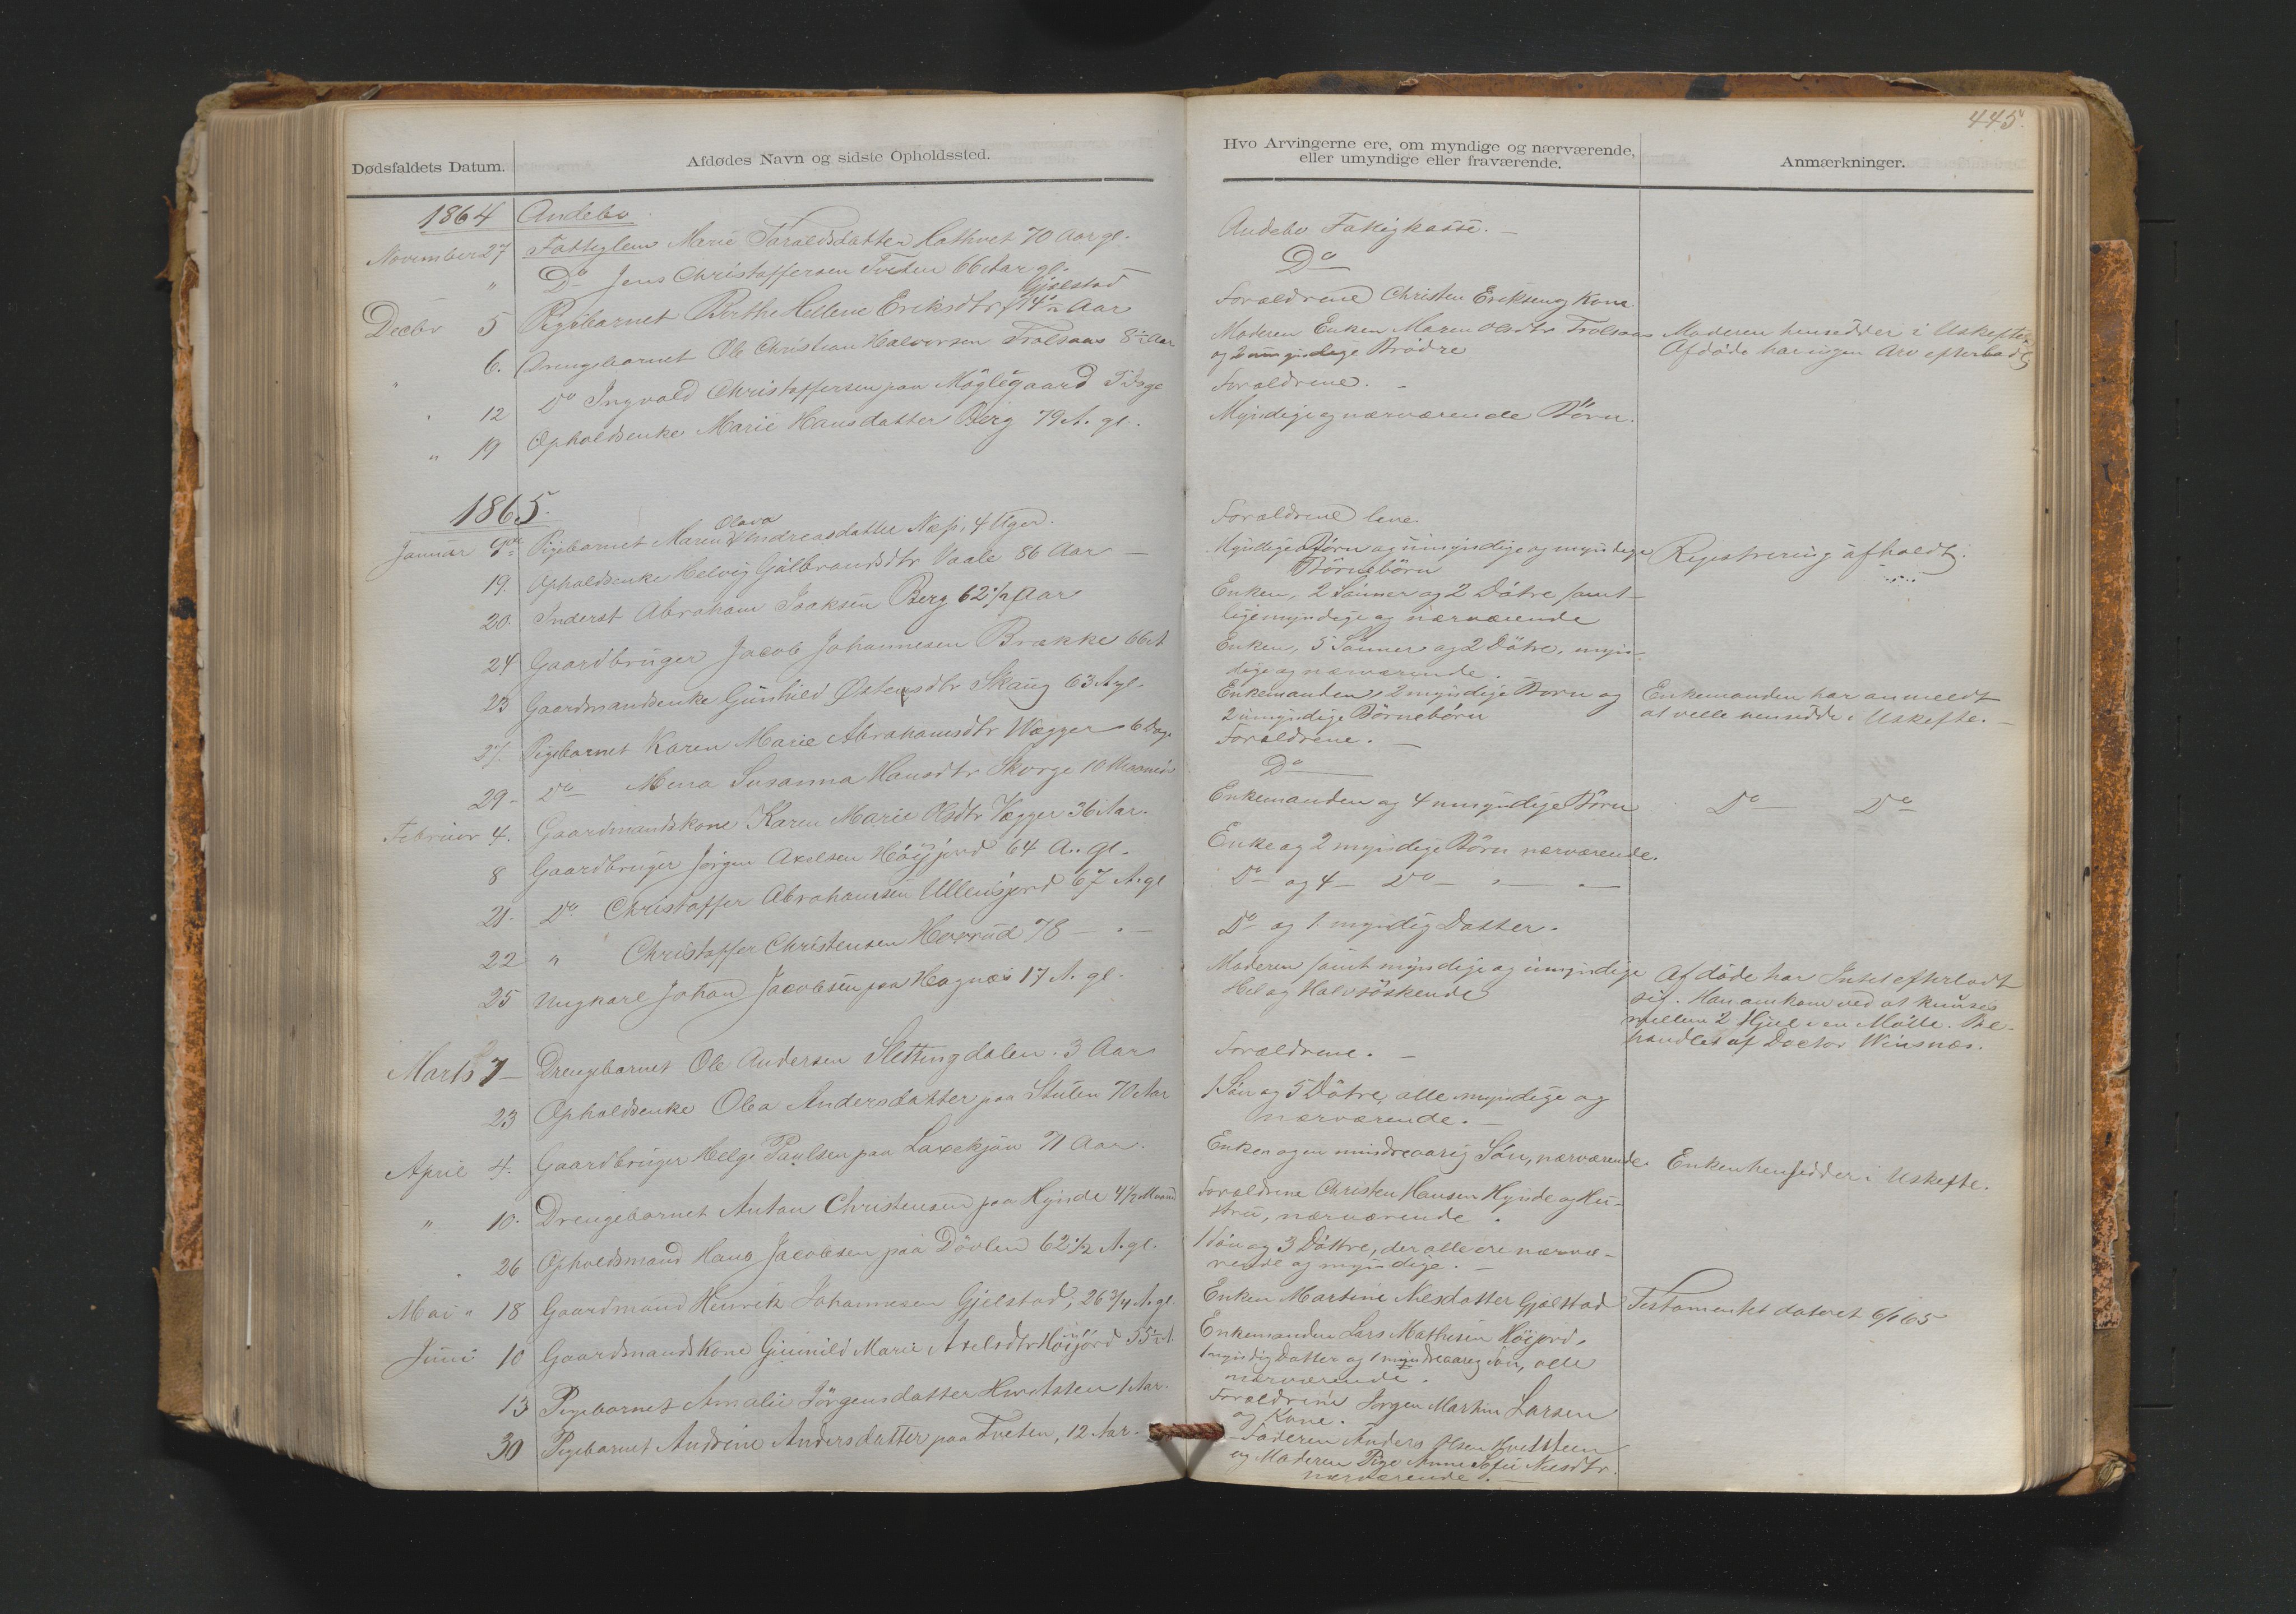 445.
Dødsfaldets Datum.
Afdødes Navn og sidste Opholdssted.
1864 Andebo
November 27 Fattiglem Marie Taraldsdatter Hathvet 70 Aar gl.
" Do Jens Christoffersen Tveden 66 Aar gl.
Gjelstad
Decbr 5 Pigebarnet Berthe Hellene Eriksdtr 14½ Aar
" 6. Drengebarnet Ole Christian Halvorsen Trolsaas 8½ Aar
" 12 Do Ingvald Christoffersen paa Møglegaard
" 19 Opholdsenke Marie Hansdatter Berg 79 A. gl.
1865.
Olava
Januar Pigebarnet Maren Andreasdatter Næs, 4 Uger.
19. Opholdsenke Helvig Gulbrandsdtr Vaale 86 Aar —
20. Inderst Abraham Isaksen Berg 62 1/2 Aar
24 Gaardbruger Jacob Johannesen Brække 66 A
23 Gaardmandsenke Gunhild Østensdtr Skaug 63 A gl.
27. Pigebarnet Karen Marie Abrahamsdtr Wegger 6 Dage
29. Do Mina Susanna Hansdtr Skorge 10 Maaned
Februar 4. Gaardmandskone Karen Marie Olsdtr Vegger 36 Aar.
8 Gaardbruger Jørgen Axelsen Höijord 64 A. gl.
21. Do Christoffer Abrahamsen Ullensjord 67 A. gl
22 " Christoffer Christensen 78 — " —
25 Ungkarl Johan Jacobsen paa Hagnæs 17 A. gl.
Marts 7 — Drengebarnet Ole Andersen Slettingdalen. 3 Aar
23 Opholdsenke Olea Andersdatter paa Stulen 70 Aar
April 4. Gaardbruger Helge Paulsen paa Laxekjøn 71 Aar.
" 10. Drengebarnet Anton Christensen paa Hynde 4 1/2 Maaned
" 26 Opholdsmand Hans Jacobsen paa Dövlen 62 1/2 A. gl.
Mai " 18 Gaardmand Henrik Johannesen Gjelstad, 26 3/4 A. gl.
Juni 10 Gaardmandskone Gunnild Marie Axelsdtr Höijord 55½ A.
13 Pigebarnet Amalie Jörgensdatter 1 Aar.
30 Pigebarnet Andrine Andersdatter paa Tveten, 12 Aar.
Hvo Arvingerne ere, om myndige og nærværende,
eller umyndige eller fraværende.
Anmærkninger.
Andebo Fattigkasse. —
Do
Forældrene Christen Eriksen og Kone
Moderen Enken Maren Olsdtr Trolsaas
og 2 umyndige Brödre
Moderen hensidder i Uskifte.
Afdöde har ingen Arv efterladt
Forældrene. —
Myndige og nærværende Börn.
Forældrene leve.
Myndige Börn og umyndige og myndige
Börnebörn
Registrering afholdt.
Enken, 2 Sönner og 2 Døtre samt-
lige myndige og nærværende
Enken, 5 Sönner og 2 Döttre, myn-
dige og nærværende.
Enkemanden, 2 myndige Born og
2 umyndige Börnebörn
Enkemanden har anmeldt
at ville hensidde i Uskifte. —
Forældrene. —
Do
Enkemanden og 4 umyndige Börn
Do Do
Enke og 2 myndige Börn nærværende.
Do og 4 — Do — " — " —
Do og 1 myndig Datter.
Moderen samt myndige og umyndige
Hel og Halvsöskende
Afdöde har Intet efterladt
sig. Han omkom ved at knuses
mellem 2 Hjul i en Mölle. Be-
handlet af Doctor Winsnæs.
Forældrene. —
1 Sön og 5 Döttre, alle myndige og
nærværende. —
Enken og en mindreaarig Sön, nærværende.
Enken hensidder i Uskifte.
Forældrene Christen Hansen Hynde og Hu-
stru, nærværende.
1 Sön og 3 Döttre, der alle ere nærvæ-
rende og myndige. —
Enken Martine Nilsdatter Gjelstad
Testamentet dateret 6/1 65
Enkemanden Lars Mathisen Höijord,
1 myndig Datter og 1 mindreaarig Sön, alle
nærværende.
Forældrene Jorgen Martin Larsen
og Kone.
Faderen Anders Olsen
og Moderen Pige Anne Sofie Nilsdtr.
nærværende. —